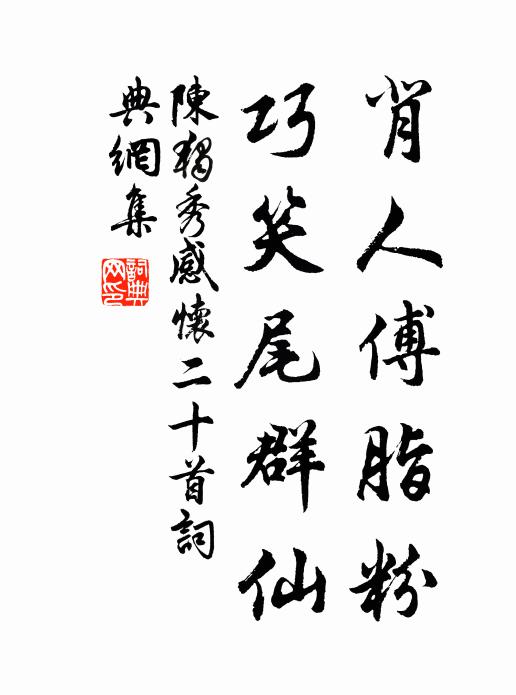 肖人傅脂粉
巧笑尾群仙
陳獨秀感懷二十首詞
典網集
詞典
网印